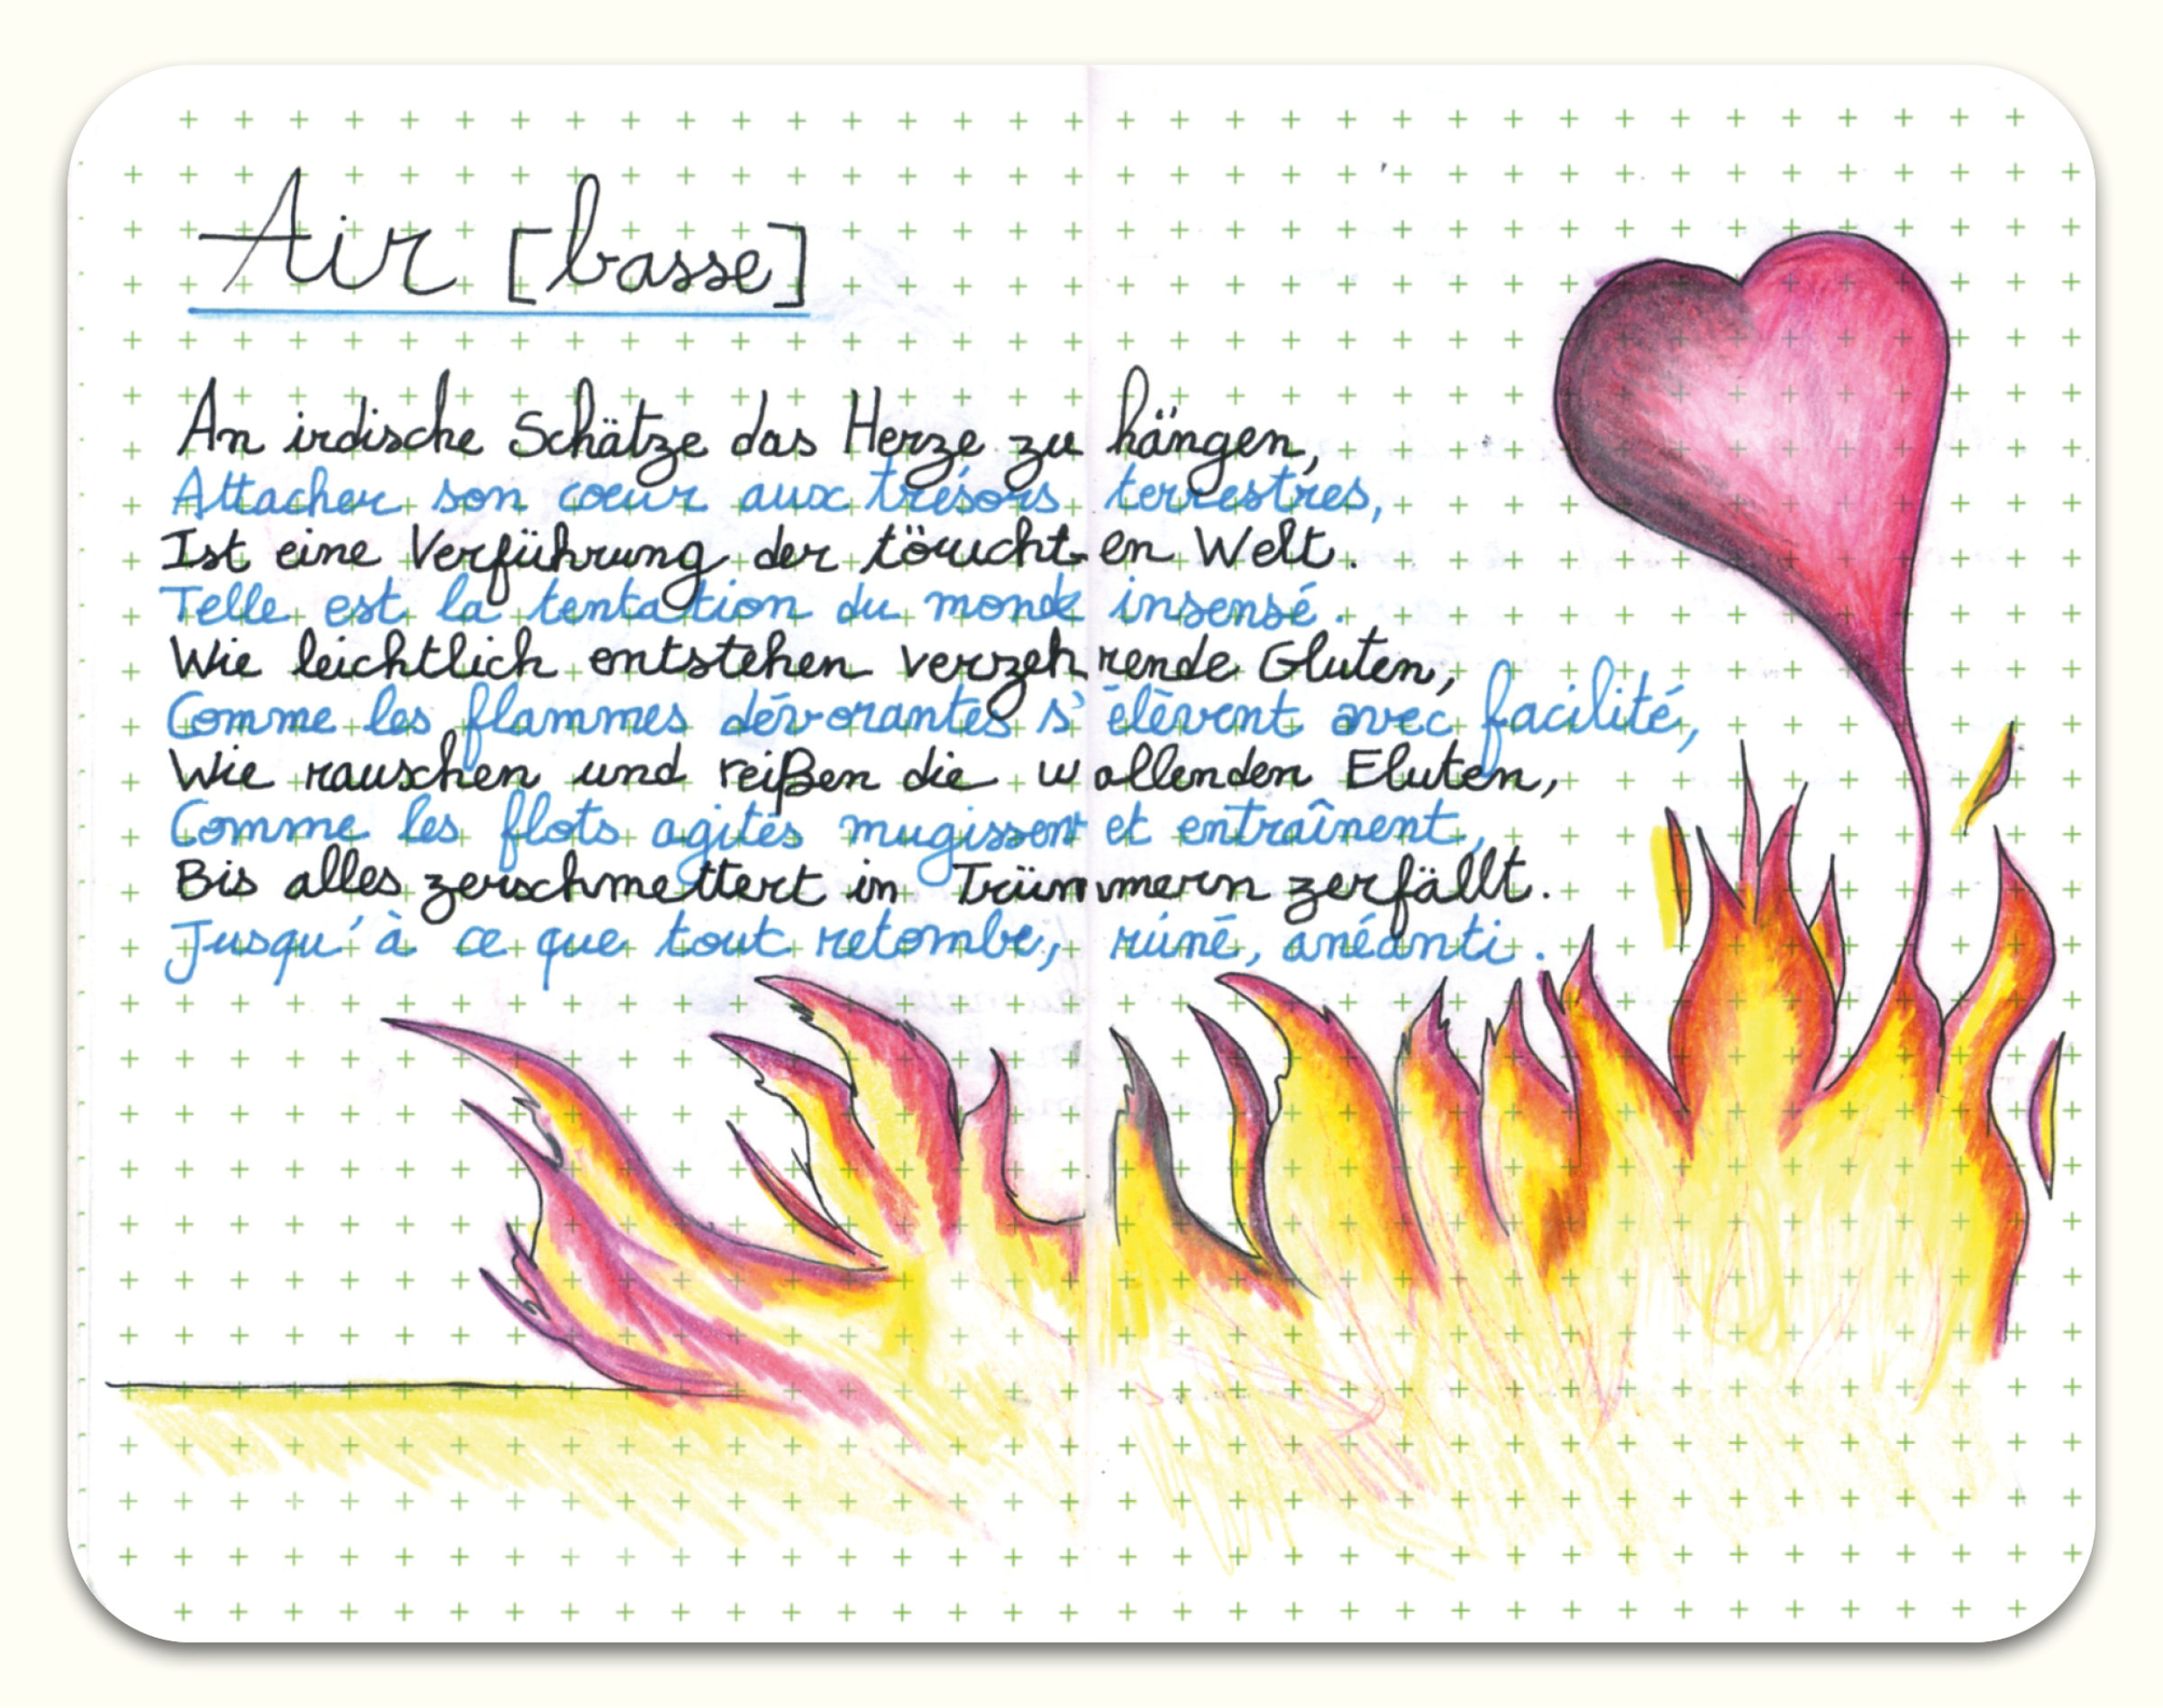 Air [basse]
An irdische Schätze das Herze zu hängen,
Attacher son cœur aux trésors terrestres,
Ist eine Verführung der törichten Welt.
Telle est la tentation du monde insensé.
Wie leichtlich entstehen verzehrende Gluten,
Comme les flammes dévorantes s'élèvent avec facilité,
Wie rauschen und reißen die wallenden Fluten,
Comme les flots agités mugissent et entraînent,
Bis alles zerschmettert in Trümmern zerfällt.
Jusqu'à ce que tout retombe, ruiné, anéanti.